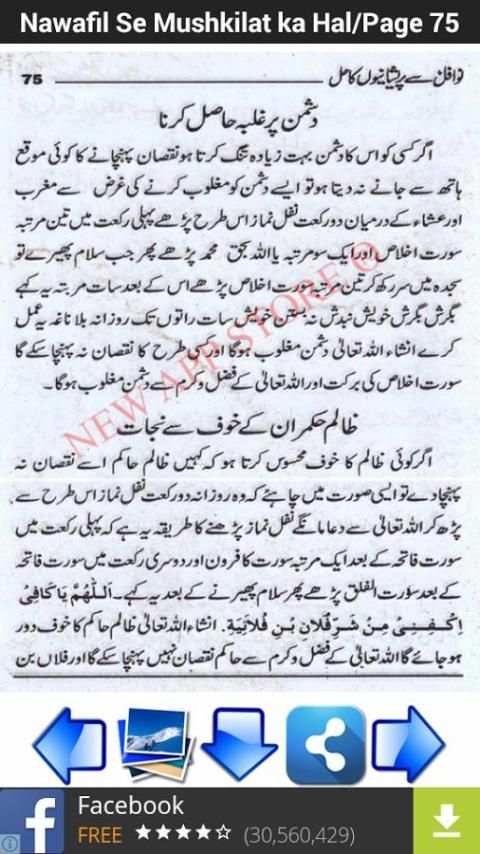 Nawafil Se Mushkilat ka Hal/Page 75
75 نوافل سے پریشانیوں کا حل
دشمن پر غلبہ حاصل کرنا
اگر کسی کو اس کا دشمن بہت زیادہ تنگ کرتا ہو نقصان پہنچانے کا کوئی موقع
ہاتھ سے جانے نہ دیتا ہو تو ایسے دشمن کو مغلوب کرنے کی غرض سے مغرب
اور عشاء کے درمیان دو رکعت نفل نماز اس طرح پڑھے پہلی رکعت میں تین مرتبہ
سورت اخلاص اور ایک سو مرتبہ یا اللہ بحق محمد پڑھے پھر جب سلام پھیرے تو
سجدہ میں سر رکھ کر تین مرتبہ سورت اخلاص پڑھے اس کے بعد سات مرتبہ یہ کہے
بگرش بگرش خویش نہ بستن خویش سات راتوں تک روزانہ بلا ناغہ یہ عمل
کرے انشاء اللہ تعالیٰ دشمن مغلوب ہوگا اور کسی طرح کا نقصان نہ پہنچا سکے گا
سورت اخلاص کی برکت اور اللہ تعالیٰ کے فضل و کرم سے دشمن مغلوب ہوگا۔
ظالم حکمران کے خوف سے نجات
اگر کوئی ظالم کا خوف محسوس کرتا ہو کہ کہیں ظالم حاکم اسے نقصان نہ
پہنچا دے تو ایسی صورت میں چاہئے کہ وہ روزانہ دو رکعت نفل نماز اس طرح سے
پڑھ کر اللہ تعالیٰ سے دعا مانگے نفل نماز پڑھنے کا طریقہ یہ ہے کہ پہلی رکعت میں
سورت فاتحہ کے بعد ایک مرتبہ سورت کافرون اور دوسری رکعت میں سورت فاتحہ
کے بعد سورت الفلق پڑھے پھر سلام پھیرنے کے بعد یہ کہے۔ اَللّٰهُمَّ یَا کَافِیْ
اِکْفِنِیْ مِنْ شَرِّ فُلَانِ بْنِ فُلَانِیَةٍ. انشاء اللہ تعالیٰ ظالم حاکم کا خوف دور
ہو جائے گا اللہ تعالیٰ کے فضل و کرم سے حاکم نقصان نہیں پہنچا سکے گا اور فلاں بن
NEW APP STORE ©
Facebook
FREE (30,560,429)